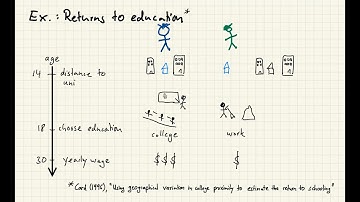 Ex.: Returns to education*
age
14 distance to
uni
18 choose education college work
30 yearly wage $$$ $
* Card (1993), "Using geographical variation in college proximity to estimate the return to schooling"